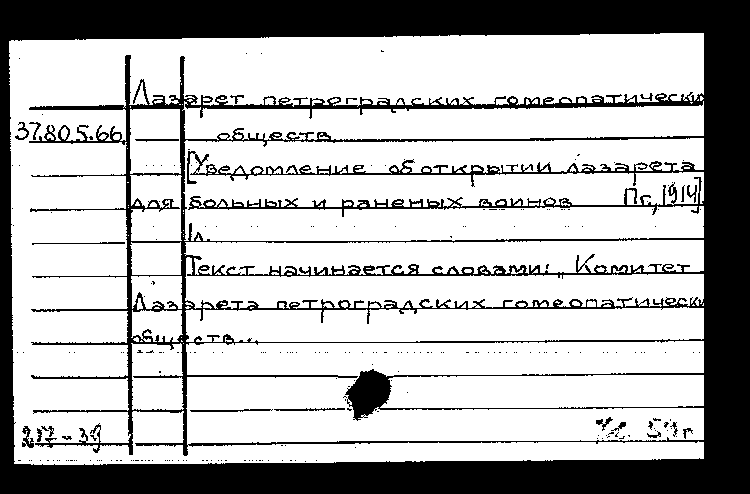 Лазарет петроградских гомеопатически
37.80.5.66. обществ.
[Уведомление об открытии лазарета
для больных и раненых воинов Пг., 1914].
1л.
Текст начинается словами: „Комитет
Лазарета петроградских гомеопатически
обществ...
217-39 59г.